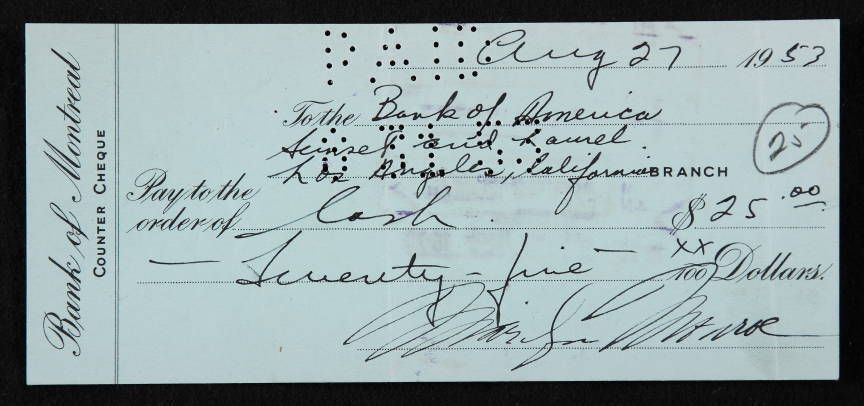 Bank of Montreal
COUNTER CHEQUE
Aug 27 1953
To the Bank of America
Sunset and Laurel.
Los Angeles, California BRANCH
25
Pay to the
order of Cash $25.00
— Twenty-five — XX/100 Dollars.
Marilyn Monroe